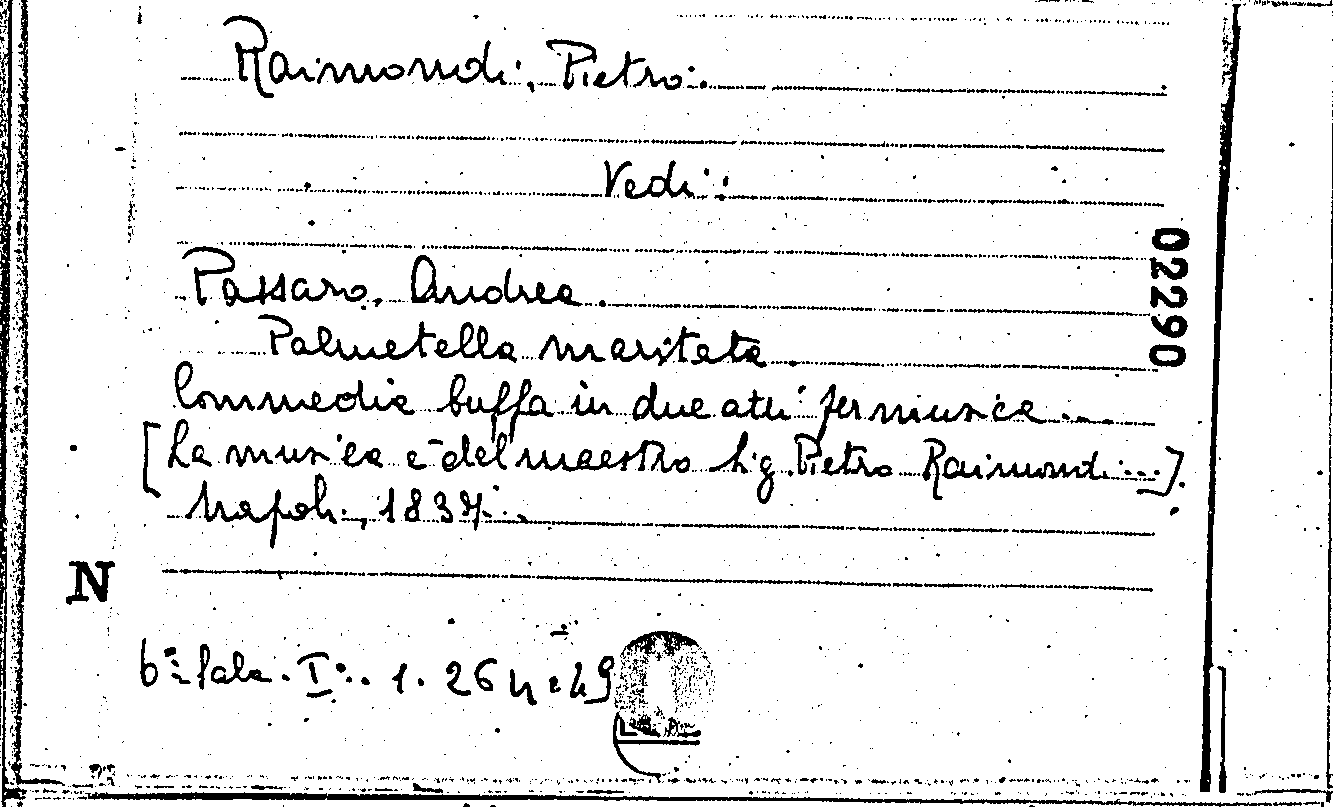 Raimondi, Pietro.
Vedi:
Passaro, Andrea.
Palmetella maritata.
Commedia buffa in due atti per musica ....
[La musica è del maestro Sig. Pietro Raimondi...].
Napoli, 1837.
02290
N
6ª Sala. I. 1. 26